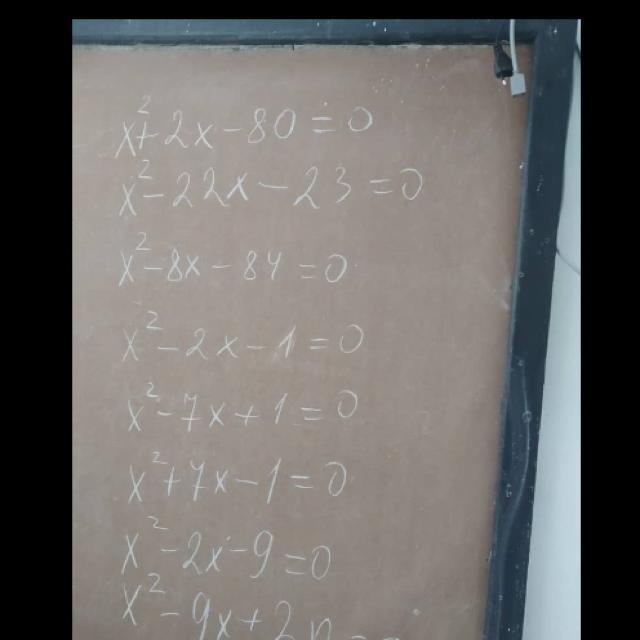 x²+2x-80=0
x²-22x-23=0
x²-8x-84=0
x²-2x-1=0
x²-7x+1=0
x²+7x-1=0
x²-2x-9=0
x²-9x+2